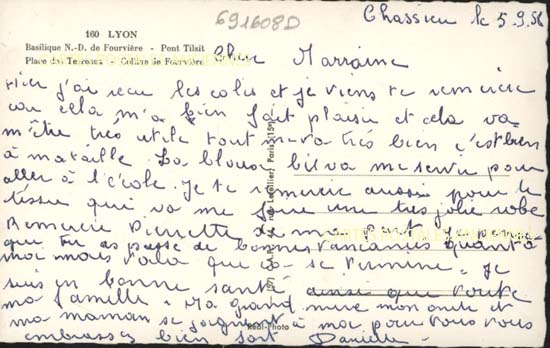 691608D
Chassieu le 5.9.56
160 LYON
Basilique N.-D. de Fourvière - Pont Tilsit
Place des Terreaux - Colline de Fourvière
Chère Marraine
Hier j'ai recu les colis et je viens te remercier
car cela m'a bien fait plaisir et cela va
m'être très utile tout me va très bien c'est bien
à ma taille. La blouse va me servir pour
aller à l'école. Je te remercie aussi pour le
tissu qui va me faire une très jolie robe
Remercie Pierrette de ma part
que tu as passé de bonnes vacances quant à
moi mais voila que se termine. Je
suis en bonne santé ainsi que toute
ma famille. Ma grand mère mon oncle et
ma maman se joignent à moi pour vous
embrasser bien fort Danielle
Real-Photo